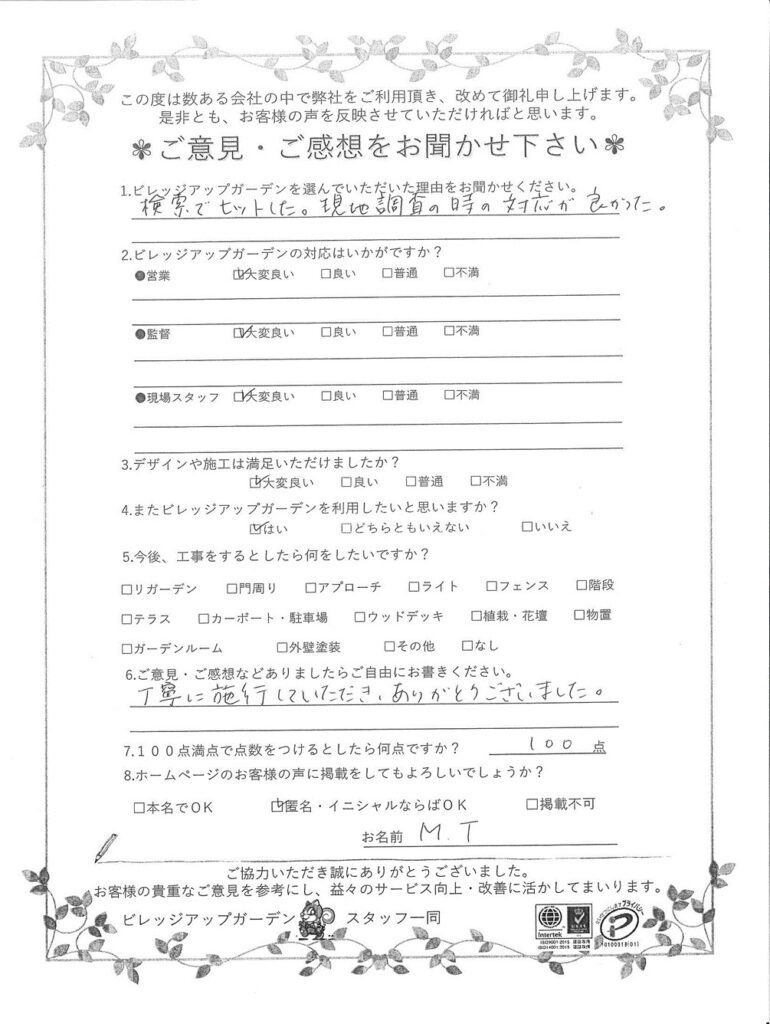 この度は数ある会社の中で弊社をご利用頂き、改めて御礼申し上げます。
是非とも、お客様の声を反映させていただければと思います。
✽ご意見・ご感想をお聞かせ下さい✽
1.ビレッジアップガーデンを選んでいただいた理由をお聞かせください。
検索でヒットした。現地調査の時の対応が良かった。
2.ビレッジアップガーデンの対応はいかがですか？
●営業 ☑大変良い □良い □普通 □不満
●監督 ☑大変良い □良い □普通 □不満
●現場スタッフ ☑大変良い □良い □普通 □不満
3.デザインや施工は満足いただけましたか？
☑大変良い □良い □普通 □不満
4.またビレッジアップガーデンを利用したいと思いますか？
☑はい □どちらともいえない □いいえ
5.今後、工事をするとしたら何をしたいですか？
□リガーデン □門周り □アプローチ □ライト □フェンス □階段
□テラス □カーポート・駐車場 □ウッドデッキ □植栽・花壇 □物置
□ガーデンルーム □外壁塗装 □その他 □なし
6.ご意見・ご感想などありましたらご自由にお書きください。
丁寧に施行していただき、ありがとうございました。
7.１００点満点で点数をつけるとしたら何点ですか？ 100 点
8.ホームページのお客様の声に掲載をしてもよろしいでしょうか？
□本名でOK ☑匿名・イニシャルならばOK □掲載不可
お名前 M.T
ご協力いただき誠にありがとうございました。
お客様の貴重なご意見を参考にし、益々のサービス向上・改善に活かしてまいります。
ビレッジアップガーデン スタッフ一同
intertek
ISO9001:2015
ISO14001:2015
プライバシー